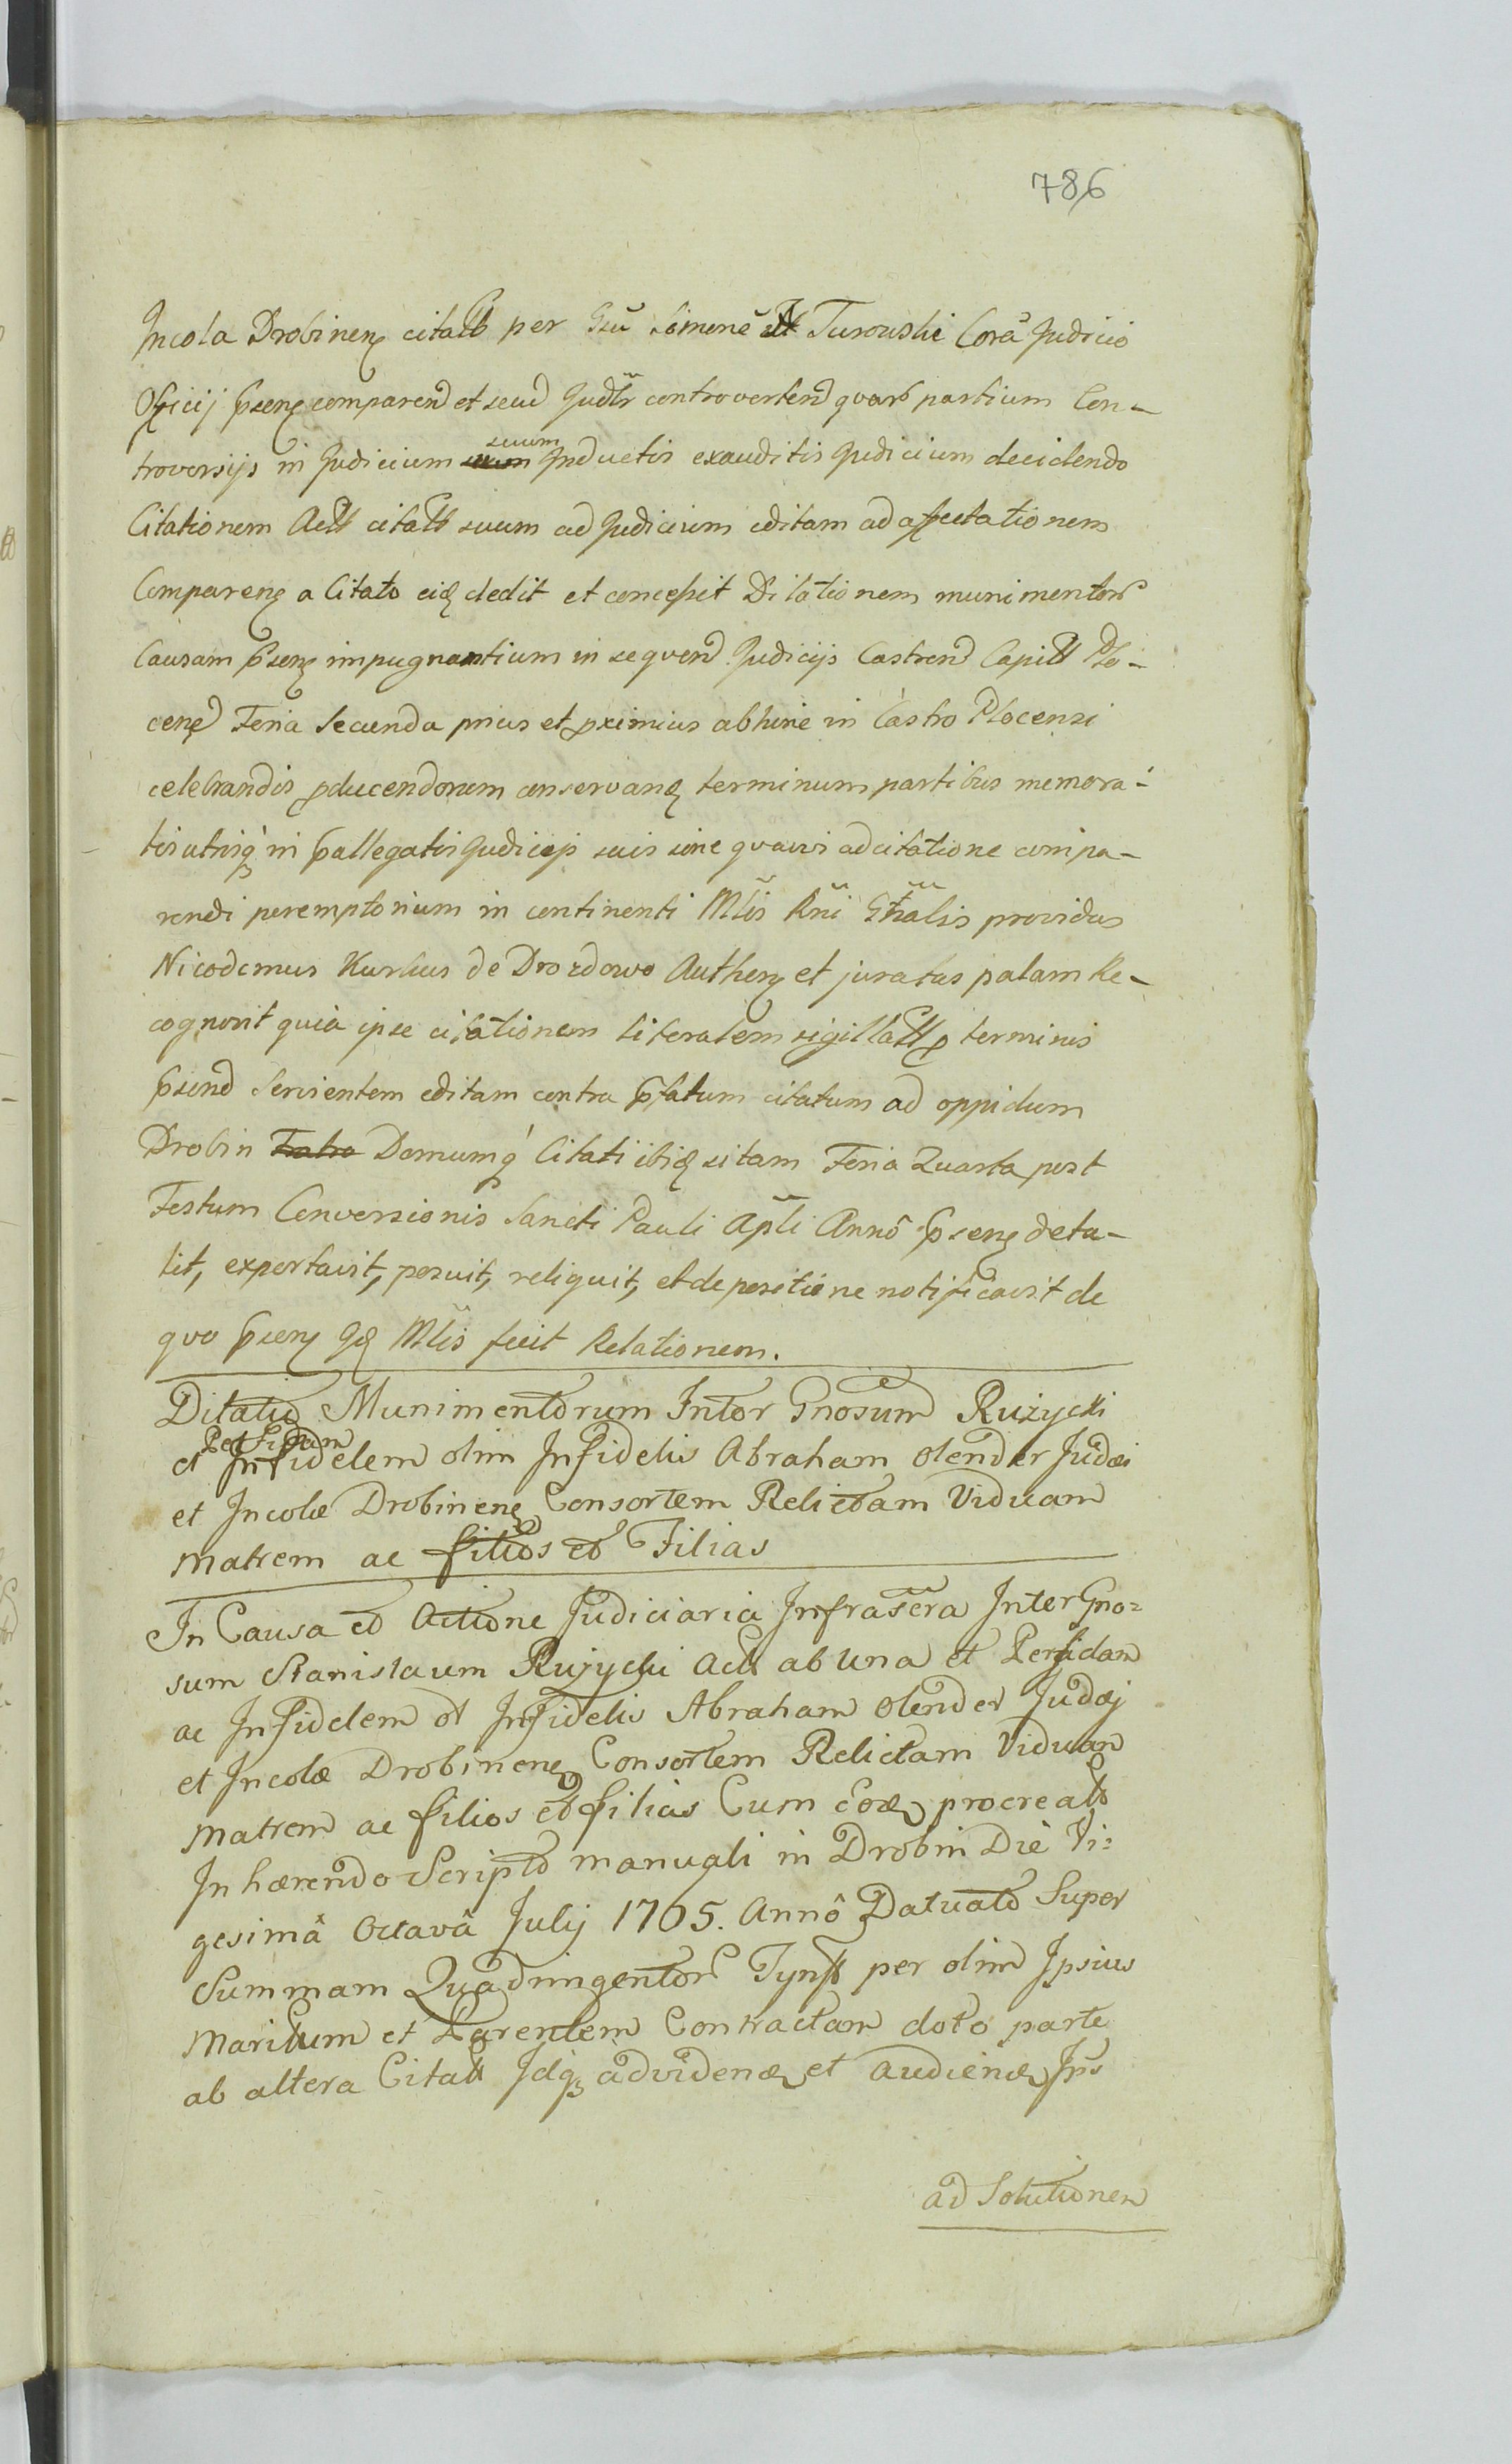 786
Incola Drobinen citatt per Gsũ Simonẽ Turowski Corã Judicio
Officij pñsen comparen et secũd Judlr controverten quarũ partium Con-
troversijs in Judicium suum Inductis exauditis Judicium decidendo
Citationem Actt citatt suum ad Judicium editam ad affectationem
Comparen a Citato eid dedit et concessit Dilationem munimentorũ
Causam pñsen impugnantium in sequen Judicijs Castren Capitt Plo-
cen Feria Secunda prius et proximius abhinc in Castro Plocensi
celebrandis producendorum conservand terminum partibus memora-
tis utrisq in pallegatis Judicijs suis sine quavis adcitatione compa-
rendi peremptorium in continenti Mtlis Rni Gñalis providus
Nicodemus Kurkus de Drozdowo Authen et juratus palam Re-
cognovit quia ipse citationem literalem sigillatt p terminis
pñsend servientem editam contra pfatum citatum ad oppidum
Drobin Domumq Citati ibid sitam Feria Quarta post
Festum Conversionis Sancti Pauli Apli Annô pñsen detu-
lit, exportavit, posuit, reliquit, et de positione notificavit de
quo pñsen Id Mtlis fecit Relationem.
Dilatio Munimentorum Inter Gnosum Ruzycki
Perfidam
et Infidelem olim Infidelis Abraham Olender Judæi
et Incolæ Drobinen Consortem Relictam Viduam
Matrem ac filios et Filias
In Causa et Actione Judiciaria Infrascra Inter Gno=
sum Stanislaum Ruzycki Actt ab una et Perfidam
ac Infidelem ol Infidelis Abraham Olender Judæj
et Incolæ Drobinen Consortem Relictam Viduam
Matrem ac filios et filias Cum eod procreatt
Inhærendo Scripto manuali in Drobin Die Vi=
gesimâ Octavâ Julij 1765. Annô Datuato Super
Summam Quadringentorũ Tynff per olim Ipsius
Maritum et Parentem Contractam dato parte
ab altera Citatt Idq ad viden et audien Ips
ad Solutionem